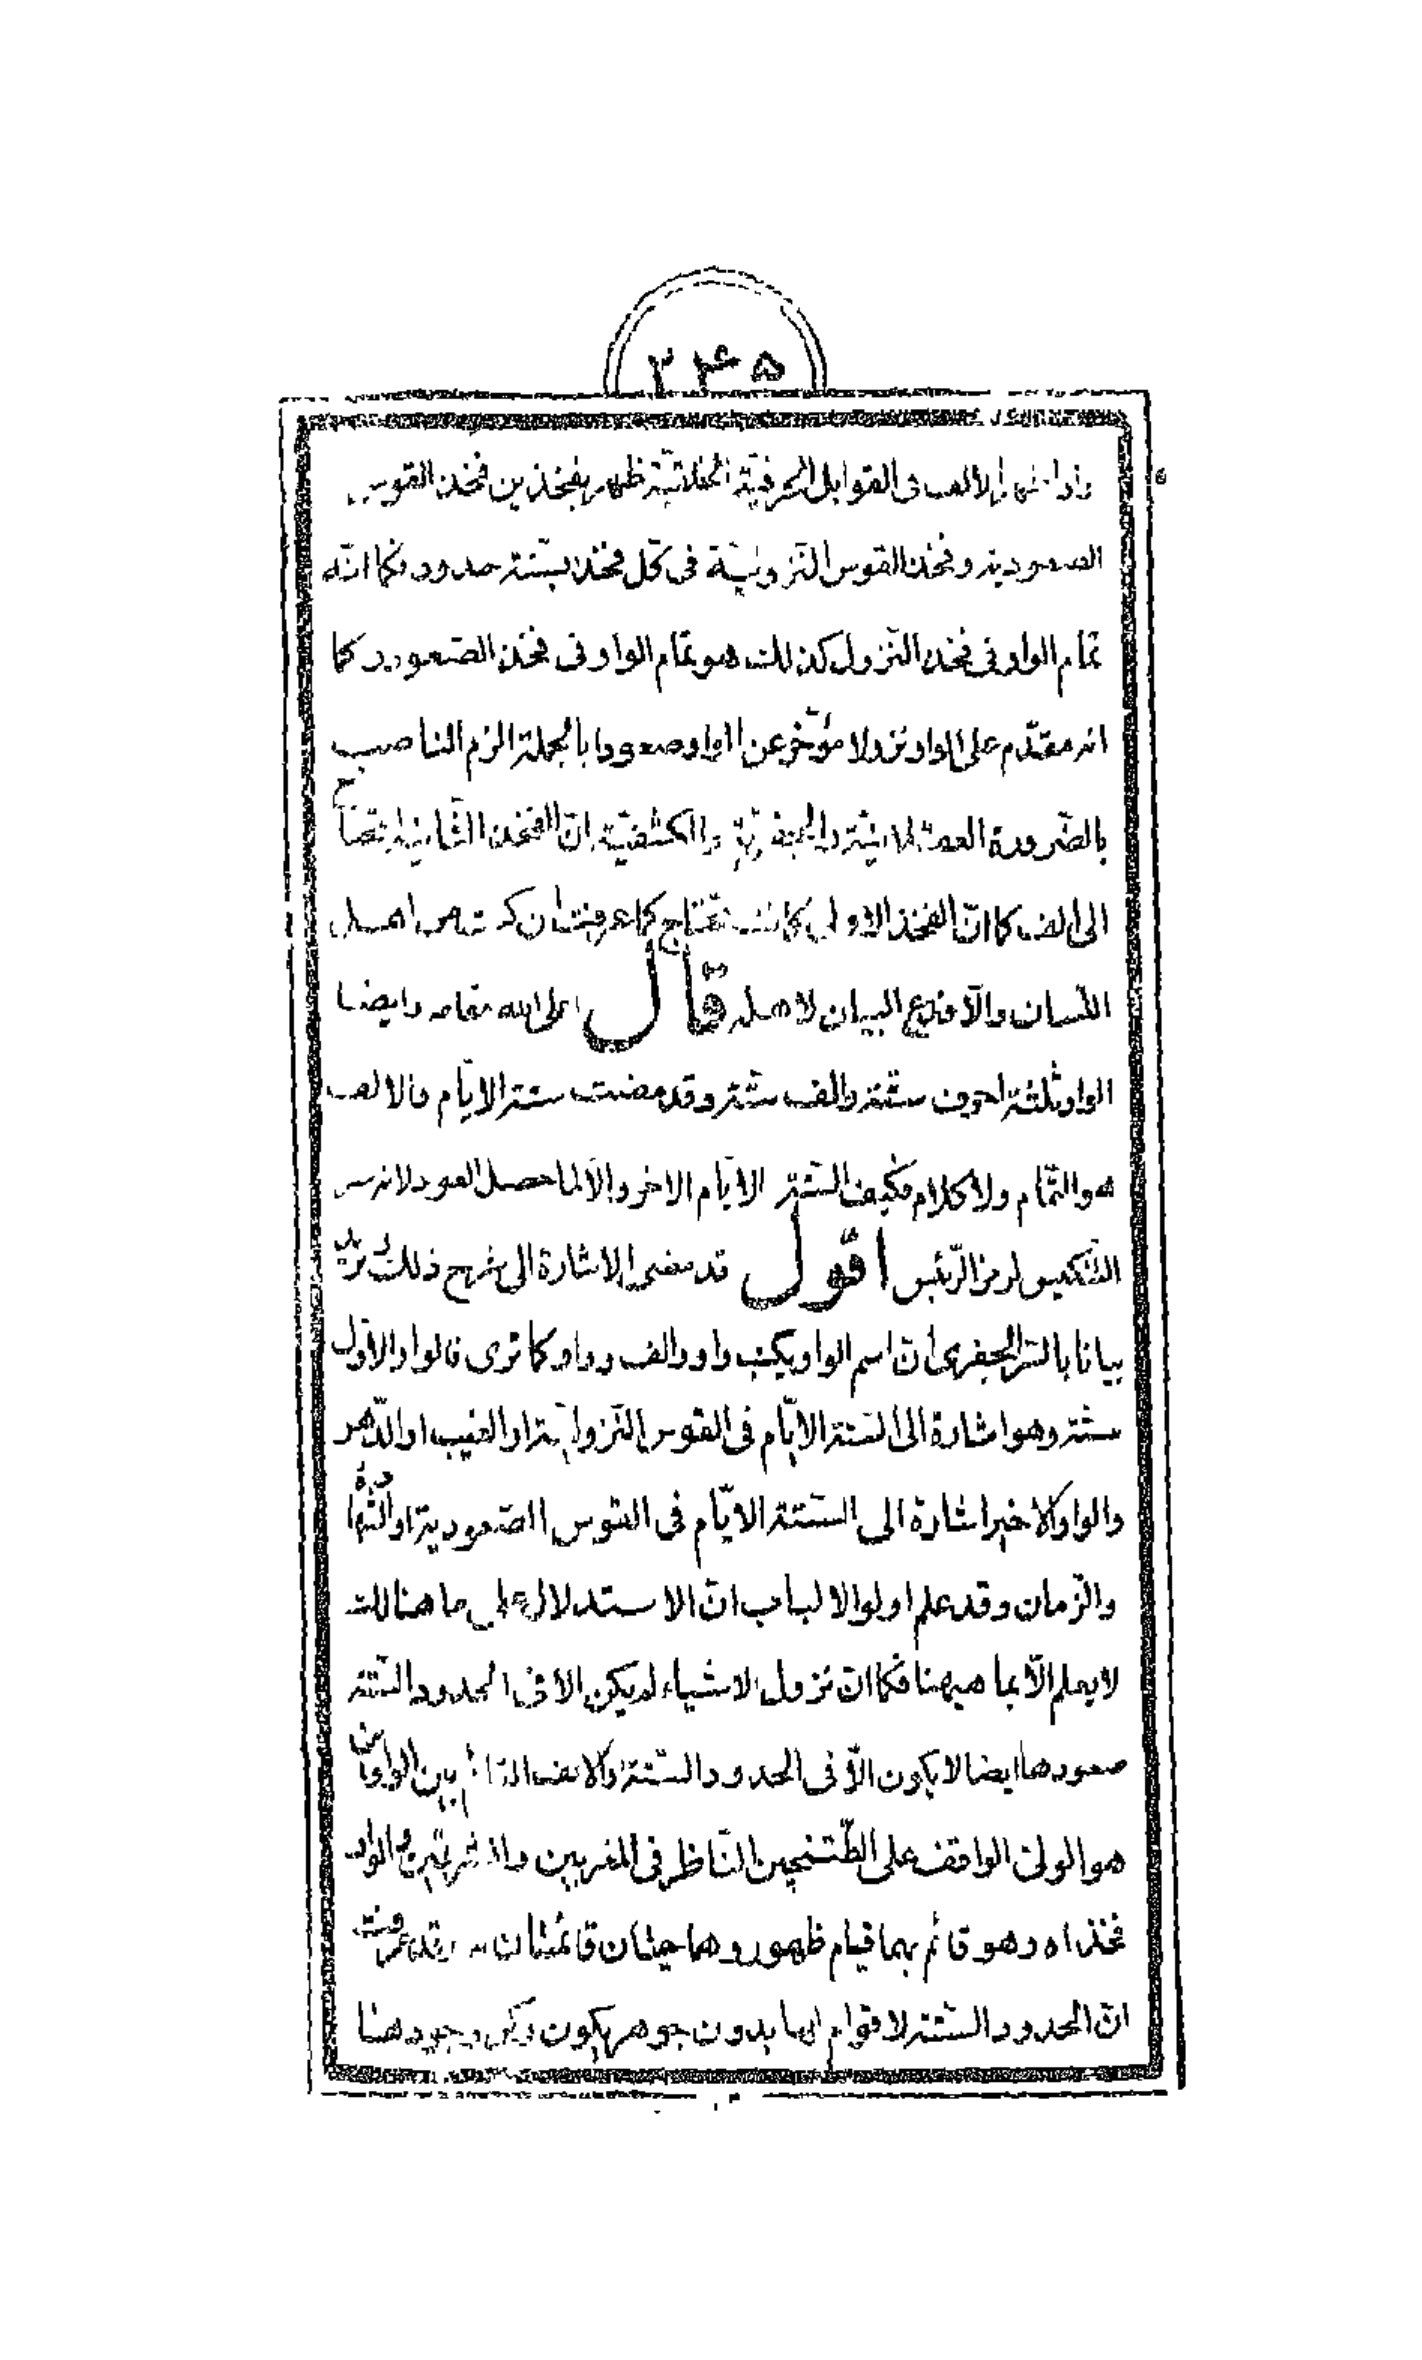 ۲۴۵
الالف فى القوابل الحرفيّة الخلقيّة ظهر بفخذين فخذ القوس
الصعودية وفخذ القوس النّزوليّة فى كلّ فخذ بستة حدود فكما انّه
تمام الواو فى فخذ النّزول كذلك هو تمام الواو فى فخذ الصّعود وكما
انه مقدّم على الواو نزولا مؤخّر عن الواو صعودا بالجملة الزم الناصب
بالضّرورة والجفريّة والكشفيّة انّ الفخذ الثّانية ايضا تحتاج
الى الف كما انّ الفخذ الاولى كانت تحتاج كما عرفت ان كنت من اهل
اللّسان والّا فدع البيان لاهله قال اعلى الله مقامه وايضا
الواو ثلثة احرف ستّة والف ستّة وقد مضت ستة الايّام والالف
هو التّمام ولا كلام فكيف الستّة الايّام الاخر والّا لما حصل العود لانه سر
التّنكيس لرمز الرّئيس اقول قد مضى الاشارة الى شرح ذلك ونزيد
بيانا بالسّر الجفرى انّ اسم الواو يكتب واو والف وواو كما ترى فالواو الاوّل
ستّة وهو اشارة الى الستة الايّام فى القوس النّزوليّة او الغيب او الدّهر
والواو الاخير اشارة الى الستّة الايّام فى القوس الصّعودية او الشّهادة
والزّمان وقد علم اولوا الالباب انّ الاستدلال على ما هنالك
لا يعلم الّا بما هيهنا فكما انّ نزول الاشياء لم يكن الا فى الحدود الستّة
صعودها ايضا لا يكون الّا فى الحدود الستّة والالف القائم بين الواوين
هو الولىّ الواقف على الطّتنجين النّاظر فى المغربين والمشرقين والواو
فخذاه وهو قائم بهما قيام ظهور وهما جنّتان قائمتان به وقد عرفت
انّ الحدود الستّة لا قوام لها بدون جوهر يكون وجودها